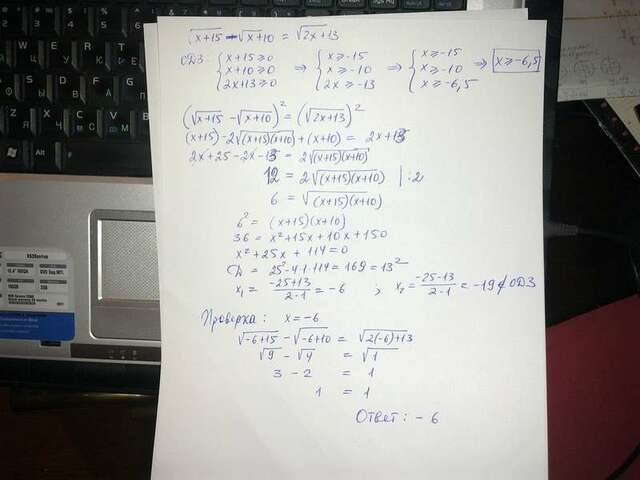 √x+15 - √x+10 = √2x+13
ОДЗ: { x+15 ≥ 0 ⇒ { x ≥ -15 ⇒ { x ≥ -15 ⇒ x ≥ -6,5
x+10 ≥ 0 x ≥ -10 x ≥ -10
2x+13 ≥ 0 2x ≥ -13 x ≥ -6,5
(√x+15 - √x+10)² = (√2x+13)²
(x+15) - 2√(x+15)(x+10) + (x+10) = 2x+13
2x+25-2x-13 = 2√(x+15)(x+10)
12 = 2√(x+15)(x+10) | :2
6 = √(x+15)(x+10)
6² = (x+15)(x+10)
36 = x²+15x+10x+150
x²+25x+114=0
Д = 25²-4·1·114 = 169 = 13²
x₁ = -25+13/2·1 = -6 ; x₂ = -25-13/2·1 = -19 ∉ ОДЗ
Проверка: x=-6
√-6+15 - √-6+10 = √2(-6)+13
√9 - √4 = √1
3 - 2 = 1
1 = 1
Ответ: -6